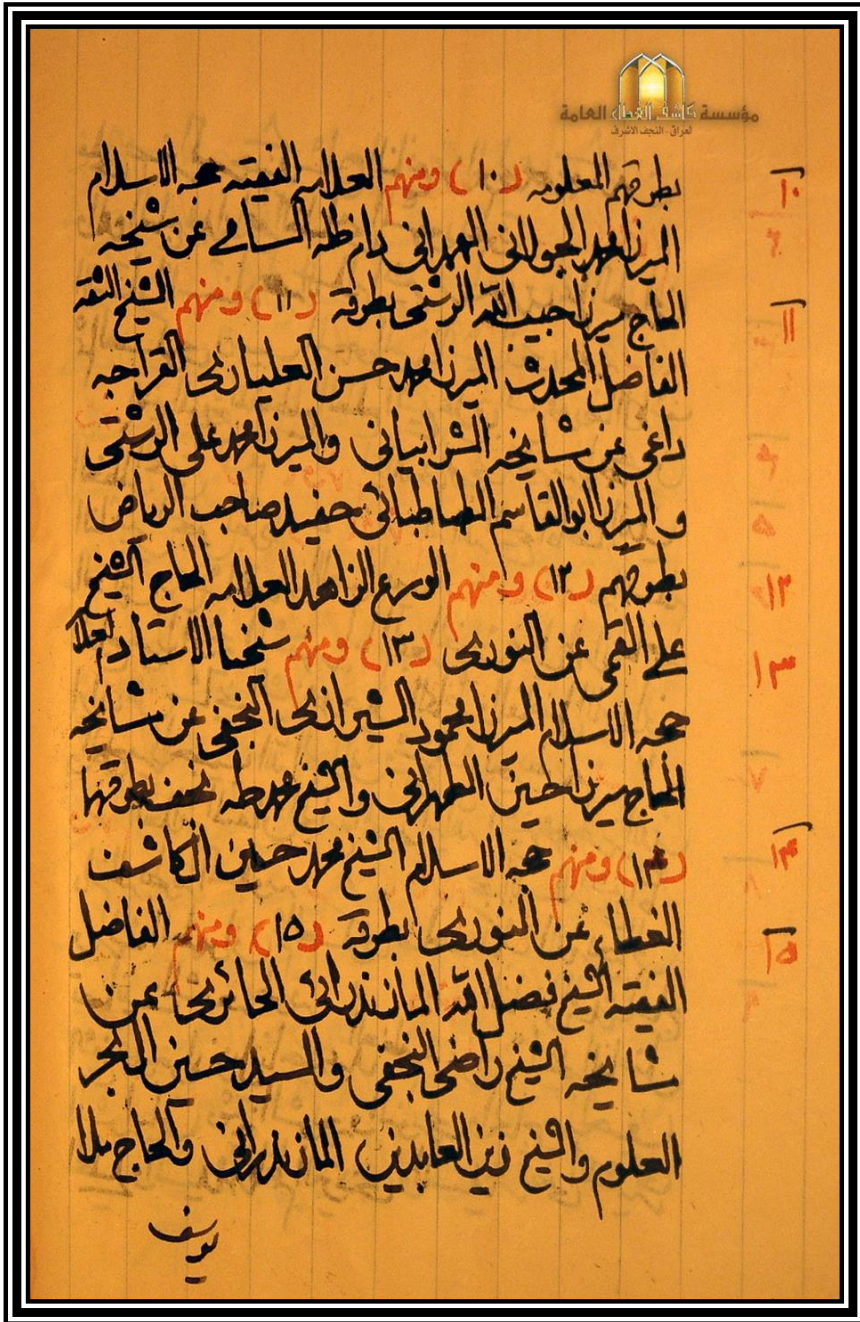 مؤسسة كاشف الغطاء العامة
العراق - النجف الاشرف
بطرقهم المعلومه (١٠) ومنهم العلامه الفقيه حجه الاسلام
الميرزا محمد الجولانى الهمدانى دام ظله السامى عن شيخه
الحاج ميرزا حبيب الله الرشتى بطرقه (١١) ومنهم الشيخ الثقه
الفاضل المحدث الميرزا محمد حسن العليارى القراجه
داغى عن مشايخه الشرابيانى والميرزا محمد على الرشتى
والميرزا ابو القاسم الطباطبائى حفيد صاحب الرياض
بطرقهم (١٢) ومنهم الورع الزاهد العلامه الحاج الشيخ
على القمى عن النورى (١٣) ومنهم شيخنا الاستاد العلا
حجه الاسلام الميرزا محمود الشيرازى النجفى عن مشايخه
الحاج ميرزا حسين الطهرانى والشيخ محمد طه نجف بطرقهما
(١٤) ومنهم حجه الاسلام الشيخ محمد حسين ال كاشف
الغطاء عن النورى بطرقه (١٥) ومنهم الفاضل
الفقيه الشيخ فضل الله المازندرانى الحائرى عن
مشايخه الشيخ راضى النجفى والسيد حسين ال بحر
العلوم والشيخ زين العابدين المازندرانى والحاج ملا
يوسف
١٠
١١
١٢
١٣
١٤
١٥